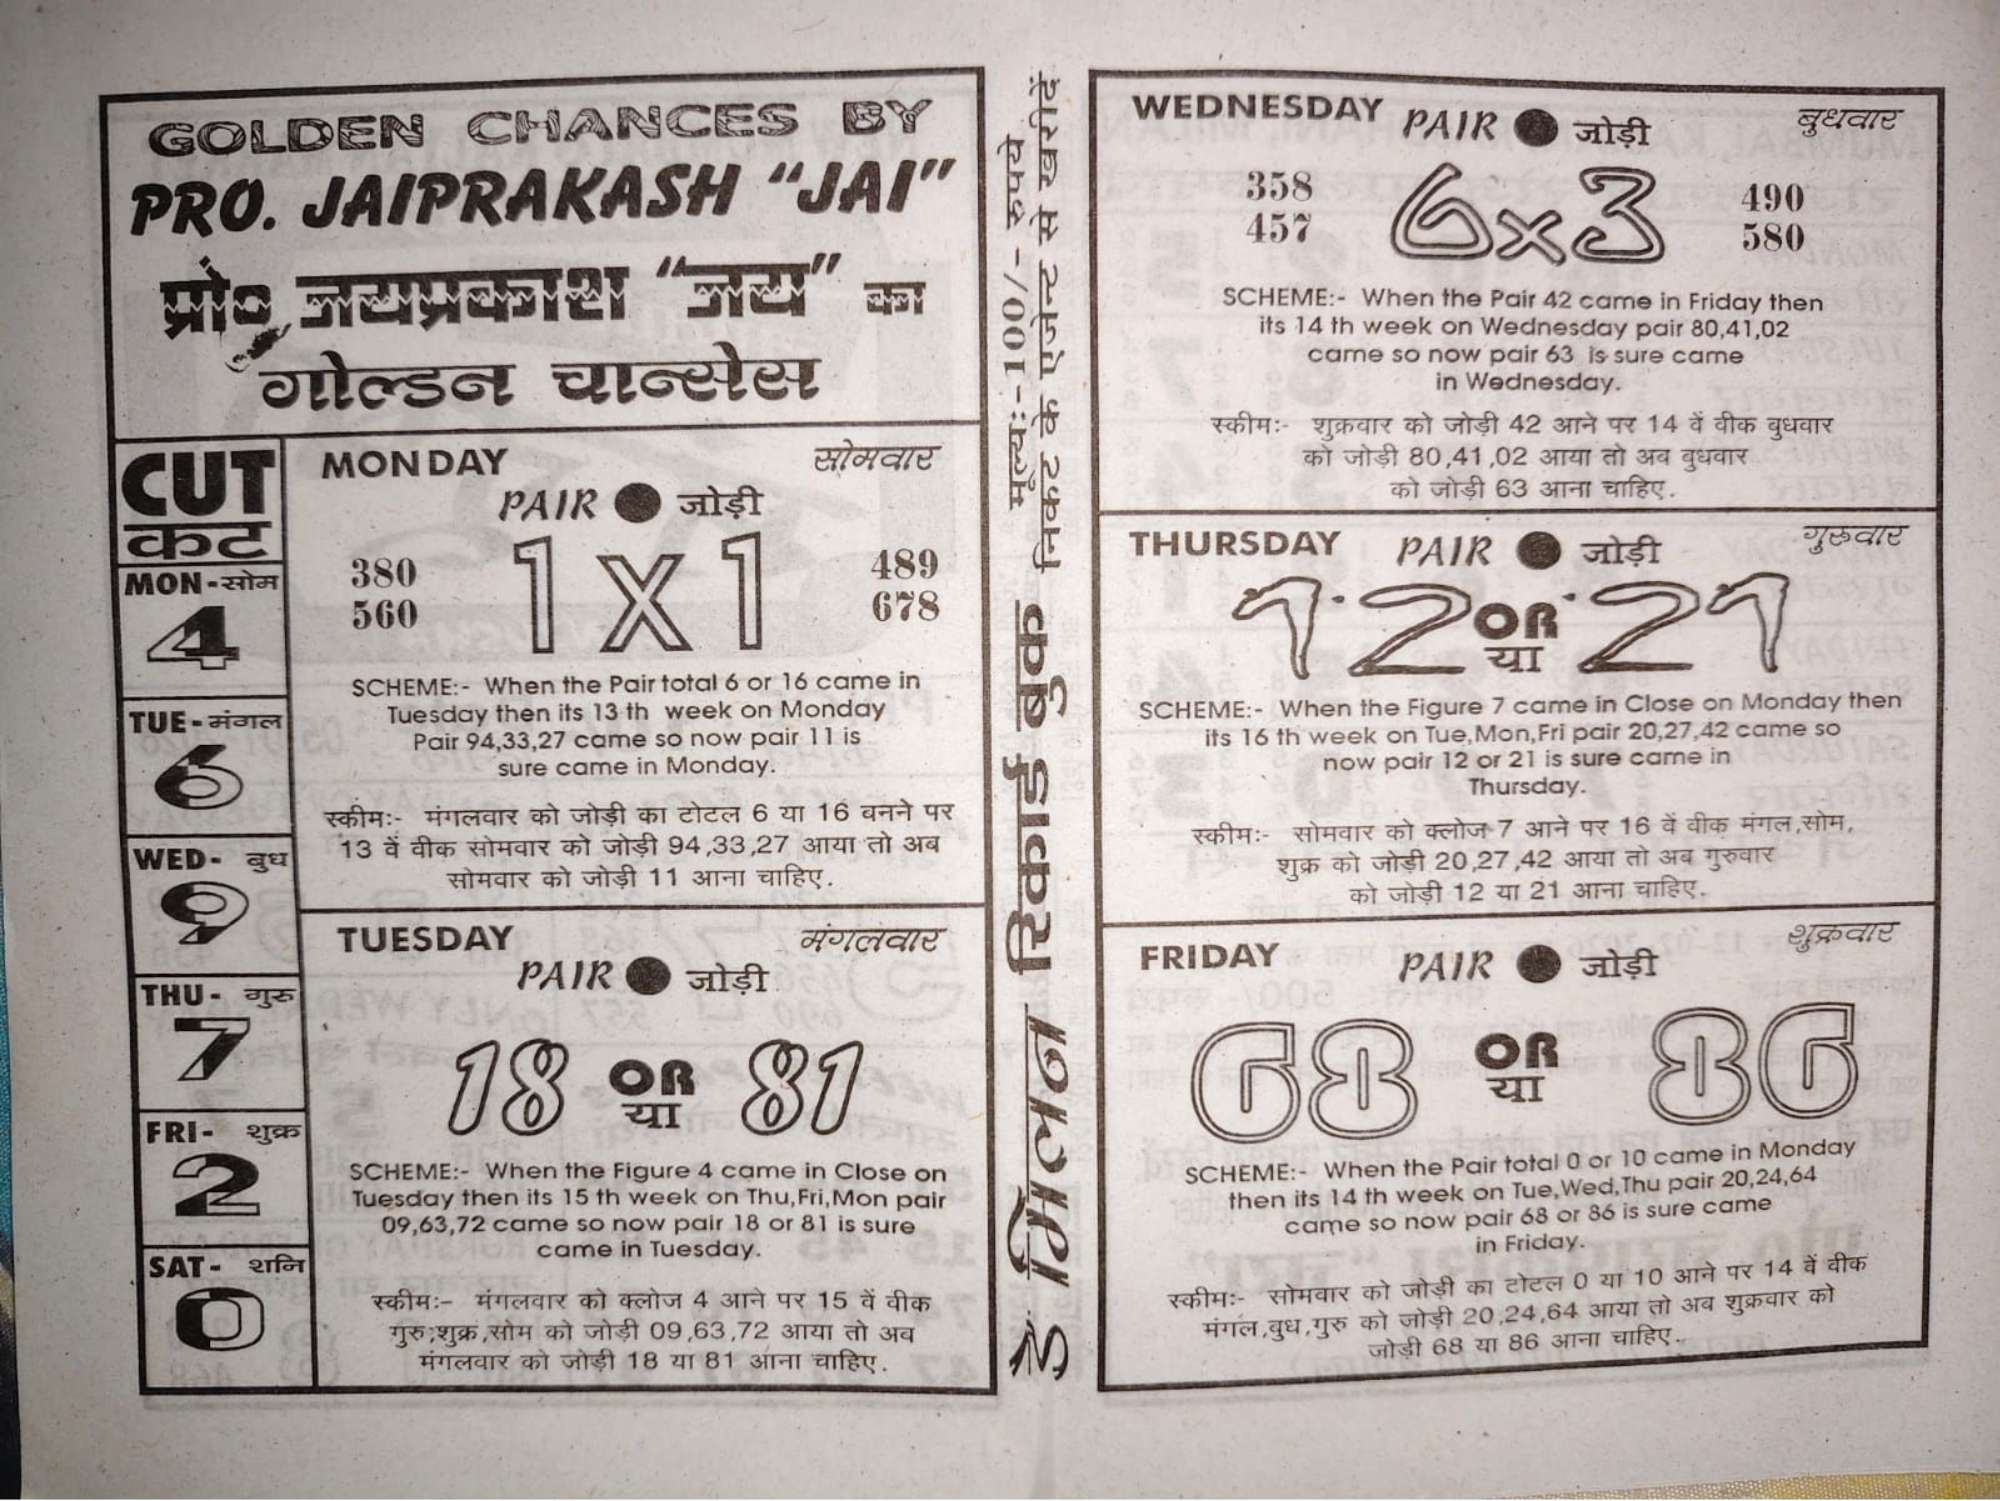 GOLDEN CHANCES BY
PRO. JAIPRAKASH "JAI"
प्रो० जयप्रकाश "जय" का
गोल्डन चान्सेस
CUT
कट
MON-सोम
4
TUE-मंगल
6
WED- बुध
9
THU- गुरु
7
FRI- शुक्र
2
SAT- शनि
0
MONDAY सोमवार
PAIR ● जोड़ी
380 1x1 489
560 678
SCHEME:- When the Pair total 6 or 16 came in
Tuesday then its 13 th week on Monday
Pair 94,33,27 came so now pair 11 is
sure came in Monday.
स्कीमः- मंगलवार को जोड़ी का टोटल 6 या 16 बनने पर
13 वें वीक सोमवार को जोड़ी 94,33,27 आया तो अब
सोमवार को जोड़ी 11 आना चाहिए.
TUESDAY मंगलवार
PAIR ● जोड़ी
18 OR 81
या
SCHEME:- When the Figure 4 came in Close on
Tuesday then its 15 th week on Thu,Fri,Mon pair
09,63,72 came so now pair 18 or 81 is sure
came in Tuesday.
स्कीमः- मंगलवार को क्लोज 4 आने पर 15 वें वीक
गुरु;शुक्र,सोम को जोड़ी 09,63,72 आया तो अब
मंगलवार को जोड़ी 18 या 81 आना चाहिए.
मूल्यः-100/- रुपये
निकट के एजेन्ट से खरीदें
मिलन रिकार्ड बुक
WEDNESDAY बुधवार
PAIR ● जोड़ी
358 6x3 490
457 580
SCHEME:- When the Pair 42 came in Friday then
its 14 th week on Wednesday pair 80,41,02
came so now pair 63 is sure came
in Wednesday.
स्कीमः- शुक्रवार को जोड़ी 42 आने पर 14 वें वीक बुधवार
को जोड़ी 80,41,02 आया तो अब बुधवार
को जोड़ी 63 आना चाहिए.
THURSDAY गुरुवार
PAIR ● जोड़ी
12 OR 21
या
SCHEME:- When the Figure 7 came in Close on Monday then
its 16 th week on Tue,Mon,Fri pair 20,27,42 came so
now pair 12 or 21 is sure came in
Thursday.
स्कीमः- सोमवार को क्लोज 7 आने पर 16 वें वीक मंगल,सोम,
शुक्र को जोड़ी 20,27,42 आया तो अब गुरुवार
को जोड़ी 12 या 21 आना चाहिए.
FRIDAY शुक्रवार
PAIR ● जोड़ी
68 OR 86
या
SCHEME:- When the Pair total 0 or 10 came in Monday
then its 14 th week on Tue,Wed,Thu pair 20,24,64
came so now pair 68 or 86 is sure came
in Friday.
स्कीमः- सोमवार को जोड़ी का टोटल 0 या 10 आने पर 14 वें वीक
मंगल,बुध,गुरु को जोड़ी 20,24,64 आया तो अब शुक्रवार को
जोड़ी 68 या 86 आना चाहिए.